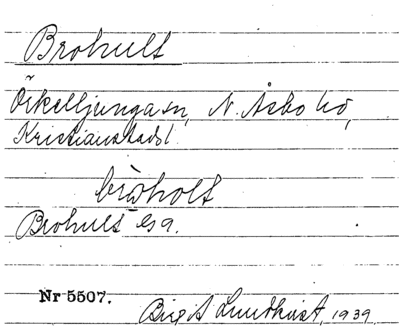 Brohult
Örkelljunga sn, N. Åsbo hd,
Kristianstads l.
bròholt
Brohult Gg.
Nr 5507.
Birgit Lundkvist, 1939